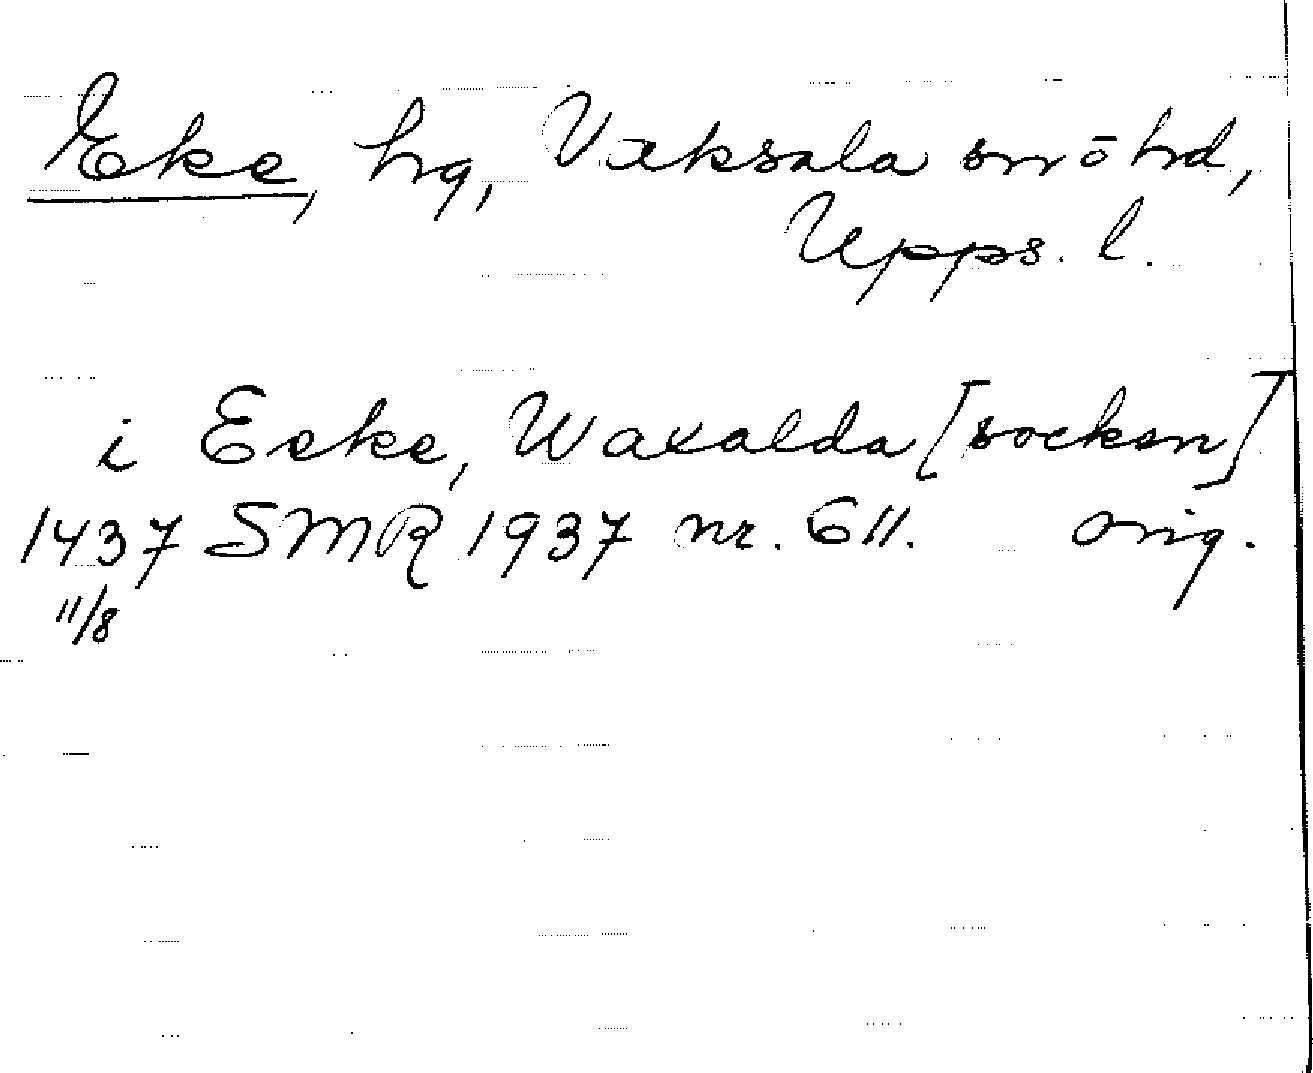 Eke, hg, Vaksala sn ō hd,
Upps. l.
i Eeke, Waxalda [socken]
1437 SMR 1937 nr. 611. orig.
11/8